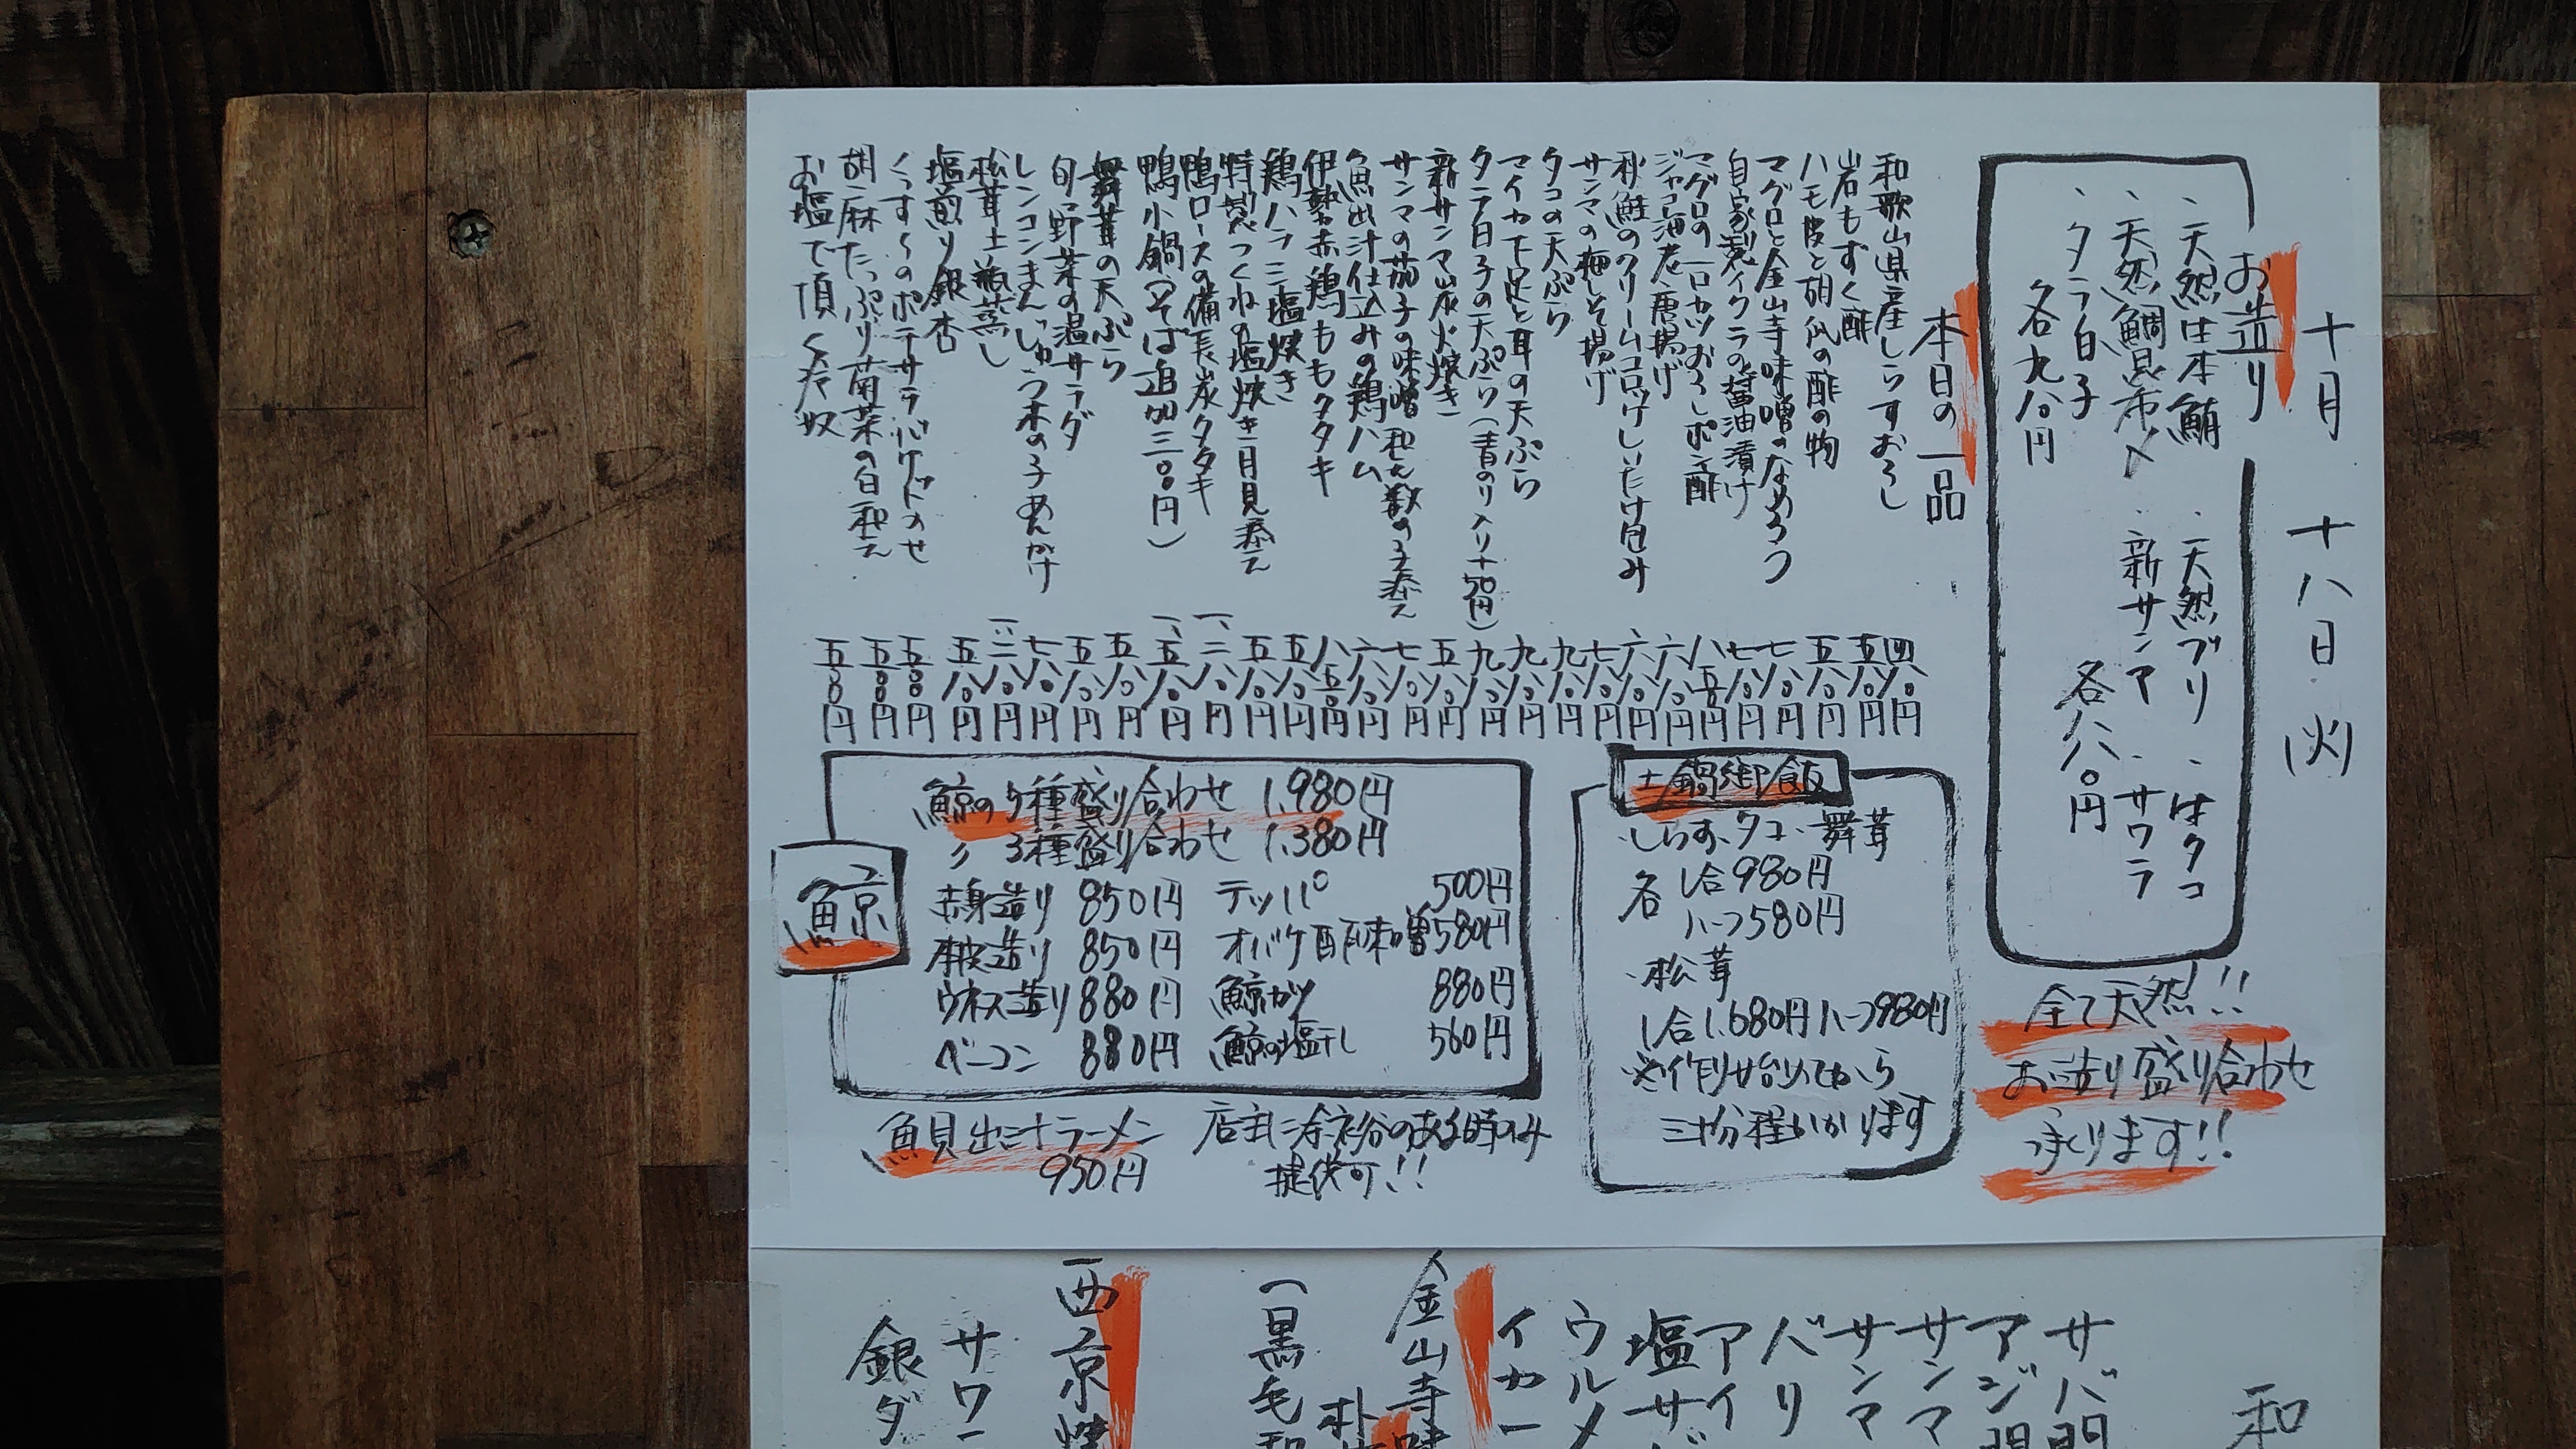 十月 十八日 (火)
お造り
、天然生本鮪 、天然ブリ 、生タコ
、天然鯛昆布〆 、新サンマ 、サワラ
、タラ白子
各九八〇円
各八八〇円
全て天然!!
お造り盛り合わせ
承ります!!
本日の一品
和歌山県産しらすおろし 四八〇円
岩もずく酢 五八〇円
ハモ皮と胡瓜の酢の物 五八〇円
マグロと金山寺味噌のなめろう 七八〇円
自家製イクラの醤油漬け 七八〇円
マグロの一口カツおろしポン酢 八五〇円
ジャコ海老唐揚げ 六八〇円
秋鮭のクリームコロッケしいたけ包み 六八〇円
サンマの梅しそ揚げ 七八〇円
タコの天ぷら 九八〇円
マイカ下足と耳の天ぷら 九八〇円
タラ白子の天ぷら(青のり入り+50円) 九八〇円
新サンマ炭火焼き 五八〇円
サンマの茄子の味噌和え数の子添え 七八〇円
魚出汁仕込みの鶏ハム 六八〇円
伊勢赤鶏ももタタキ 八五〇円
鶏ハラミ塩焼き 五八〇円
特製つくねの塩焼き月見添え 五八〇円
鴨ロースの備長炭タタキ 一、二八〇円
鴨小鍋(そば追加三〇〇円) 一、五八〇円
舞茸の天ぷら 五八〇円
旬の野菜の温サラダ 五八〇円
レンコンまんじゅう木の子あんかけ 七八〇円
松茸土瓶蒸し 一、二八〇円
塩煎り銀杏 五八〇円
くっすぅのポテサラバゲットのせ 五〇〇円
胡麻たっぷり菊菜の白和え 五〇〇円
お塩で頂く冷奴 五〇〇円
土鍋御飯
・しらす・タコ・舞茸
各 1合980円
ハーフ580円
・松茸
1合1,680円ハーフ980円
※作り始めてから
三十分程かかります
鯨
鯨の5種盛り合わせ 1,980円
〃 3種盛り合わせ 1,380円
赤身造り 850円
本皮造り 850円
ウネス造り 880円
ベーコン 880円
テッパ° 500円
オバケ酢味噌 580円
鯨カツ 880円
鯨の塩干し 560円
魚貝出汁ラーメン
950円
店主に余裕のある時のみ
提供可!!
和
サバ開
アジ開
サンマ
サンマ
バリ
アイ
塩サバ
ウルメ
イカ一
金山寺味
朴
(黒毛和
西京焼
サワー
銀ダ